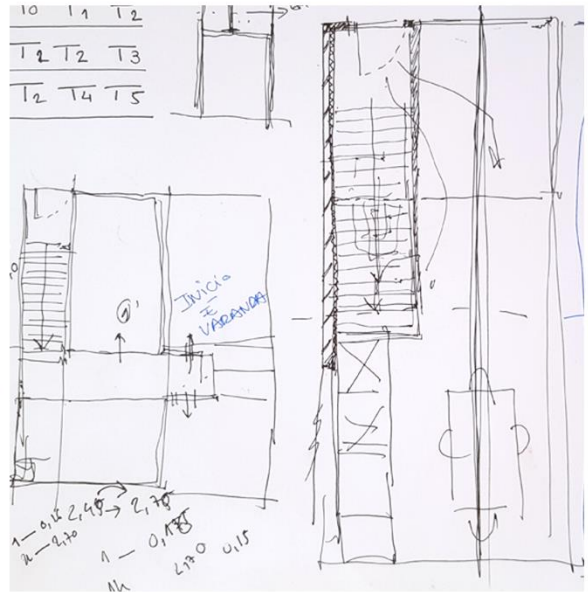 T0 T1 T2
T2 T2 T3
T2 T4 T5
1'
INICIO
E
VARANDA
1 — 0,15 2,45 → 2,75
x — 2,70
1 — 0,175
2,70 0,15